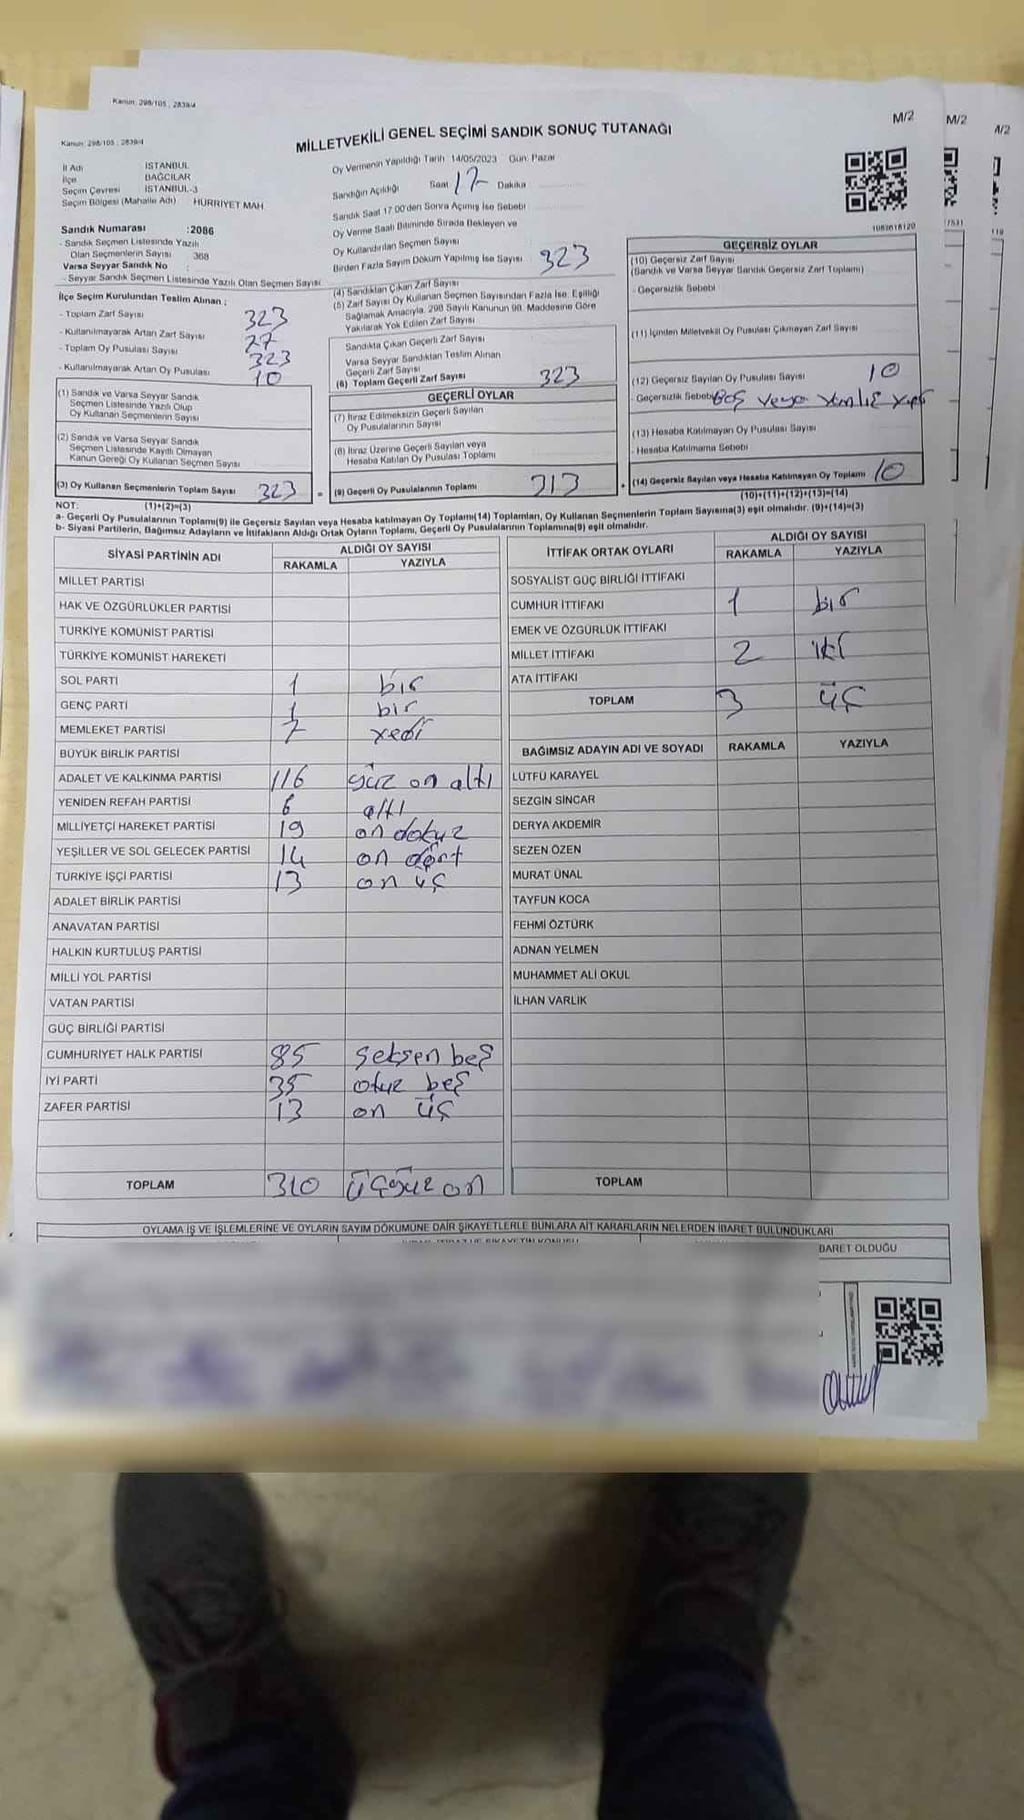 Kanun: 298/105 ; 2839/4
M/2
M/2
Kanun: 298/105 ; 2839/4
MİLLETVEKİLİ GENEL SEÇİMİ SANDIK SONUÇ TUTANAĞI
M/2
İl Adı İSTANBUL
İlçe BAĞCILAR
Seçim Çevresi İSTANBUL-3
Seçim Bölgesi (Mahalle Adı) HÜRRİYET MAH
Sandık Numarası :2086
- Sandık Seçmen Listesinde Yazılı
Olan Seçmenlerin Sayısı 368
Varsa Seyyar Sandık No :
- Seyyar Sandık Seçmen Listesinde Yazılı Olan Seçmen Sayısı
Oy Vermenin Yapıldığı Tarih 14/05/2023 Gün: Pazar
Sandığın Açıldığı Saat 17 Dakika
Sandık Saat 17:00'den Sonra Açılmış İse Sebebi
Oy Verme Saati Bitiminde Sırada Bekleyen ve
Oy Kullandırılan Seçmen Sayısı
Birden Fazla Sayım Döküm Yapılmış İse Sayısı 323
1083618120
İlçe Seçim Kurulundan Teslim Alınan ;
- Toplam Zarf Sayısı 323
- Kullanılmayarak Artan Zarf Sayısı 27
- Toplam Oy Pusulası Sayısı 323
- Kullanılmayarak Artan Oy Pusulası 10
(1) Sandık ve Varsa Seyyar Sandık
Seçmen Listesinde Yazılı Olup
Oy Kullanan Seçmenlerin Sayısı
(2) Sandık ve Varsa Seyyar Sandık
Seçmen Listesinde Kayıtlı Olmayan
Kanun Gereği Oy Kullanan Seçmen Sayısı
(3) Oy Kullanan Seçmenlerin Toplam Sayısı 323
(4) Sandıktan Çıkan Zarf Sayısı
(5) Zarf Sayısı Oy Kullanan Seçmen Sayısından Fazla İse, Eşitliği
Sağlamak Amacıyla, 298 Sayılı Kanunun 98. Maddesine Göre
Yakılarak Yok Edilen Zarf Sayısı
Sandıkta Çıkan Geçerli Zarf Sayısı
Varsa Seyyar Sandıktan Teslim Alınan
Geçerli Zarf Sayısı
(6) Toplam Geçerli Zarf Sayısı 323
GEÇERLİ OYLAR
(7) İtiraz Edilmeksizin Geçerli Sayılan
Oy Pusulalarının Sayısı
(8) İtiraz Üzerine Geçerli Sayılan veya
Hesaba Katılan Oy Pusulası Toplamı
= (9) Geçerli Oy Pusulalarının Toplamı 313
GEÇERSİZ OYLAR
(10) Geçersiz Zarf Sayısı
(Sandık ve Varsa Seyyar Sandık Geçersiz Zarf Toplamı)
- Geçersizlik Sebebi
(11) İçinden Milletvekili Oy Pusulası Çıkmayan Zarf Sayısı
(12) Geçersiz Sayılan Oy Pusulası Sayısı 10
- Geçersizlik Sebebi Boş veya
(13) Hesaba Katılmayan Oy Pusulası Sayısı
- Hesaba Katılmama Sebebi
+ (14) Geçersiz Sayılan veya Hesaba Katılmayan Oy Toplamı 10
NOT: (1)+(2)=(3) (10)+(11)+(12)+(13)=(14)
a- Geçerli Oy Pusulalarının Toplamı(9) ile Geçersiz Sayılan veya Hesaba katılmayan Oy Toplamı(14) Toplamları, Oy Kullanan Seçmenlerin Toplam Sayısına(3) eşit olmalıdır. (9)+(14)=(3)
b- Siyasi Partilerin, Bağımsız Adayların ve İttifakların Aldığı Ortak Oyların Toplamı, Geçerli Oy Pusulalarının Toplamına(9) eşit olmalıdır.
SİYASİ PARTİNİN ADI ALDIĞI OY SAYISI
RAKAMLA YAZIYLA
MİLLET PARTİSİ
HAK VE ÖZGÜRLÜKLER PARTİSİ
TÜRKİYE KOMÜNİST PARTİSİ
TÜRKİYE KOMÜNİST HAREKETİ
SOL PARTİ 1 bir
GENÇ PARTİ 1 bir
MEMLEKET PARTİSİ 7 yedi
BÜYÜK BİRLİK PARTİSİ
ADALET VE KALKINMA PARTİSİ 116 yüz on altı
YENİDEN REFAH PARTİSİ 6 altı
MİLLİYETÇİ HAREKET PARTİSİ 19 on dokuz
YEŞİLLER VE SOL GELECEK PARTİSİ 14 on dört
TÜRKİYE İŞÇİ PARTİSİ 13 on üç
ADALET BİRLİK PARTİSİ
ANAVATAN PARTİSİ
HALKIN KURTULUŞ PARTİSİ
MİLLİ YOL PARTİSİ
VATAN PARTİSİ
GÜÇ BİRLİĞİ PARTİSİ
CUMHURİYET HALK PARTİSİ 85 seksen beş
İYİ PARTİ 35 otuz beş
ZAFER PARTİSİ 13 on üç
TOPLAM 310 üçyüz on
İTTİFAK ORTAK OYLARI ALDIĞI OY SAYISI
RAKAMLA YAZIYLA
SOSYALİST GÜÇ BİRLİĞİ İTTİFAKI
CUMHUR İTTİFAKI 1 bir
EMEK VE ÖZGÜRLÜK İTTİFAKI
MİLLET İTTİFAKI 2 iki
ATA İTTİFAKI
TOPLAM 3 üç
BAĞIMSIZ ADAYIN ADI VE SOYADI RAKAMLA YAZIYLA
LÜTFÜ KARAYEL
SEZGİN SİNCAR
DERYA AKDEMİR
SEZEN ÖZEN
MURAT ÜNAL
TAYFUN KOCA
FEHMİ ÖZTÜRK
ADNAN YELMEN
MUHAMMET ALİ OKUL
İLHAN VARLIK
TOPLAM
OYLAMA İŞ VE İŞLEMLERİNE VE OYLARIN SAYIM DÖKÜMÜNE DAİR ŞİKAYETLERLE BUNLARA AİT KARARLARIN NELERDEN İBARET BULUNDUKLARI
BARET OLDUĞU